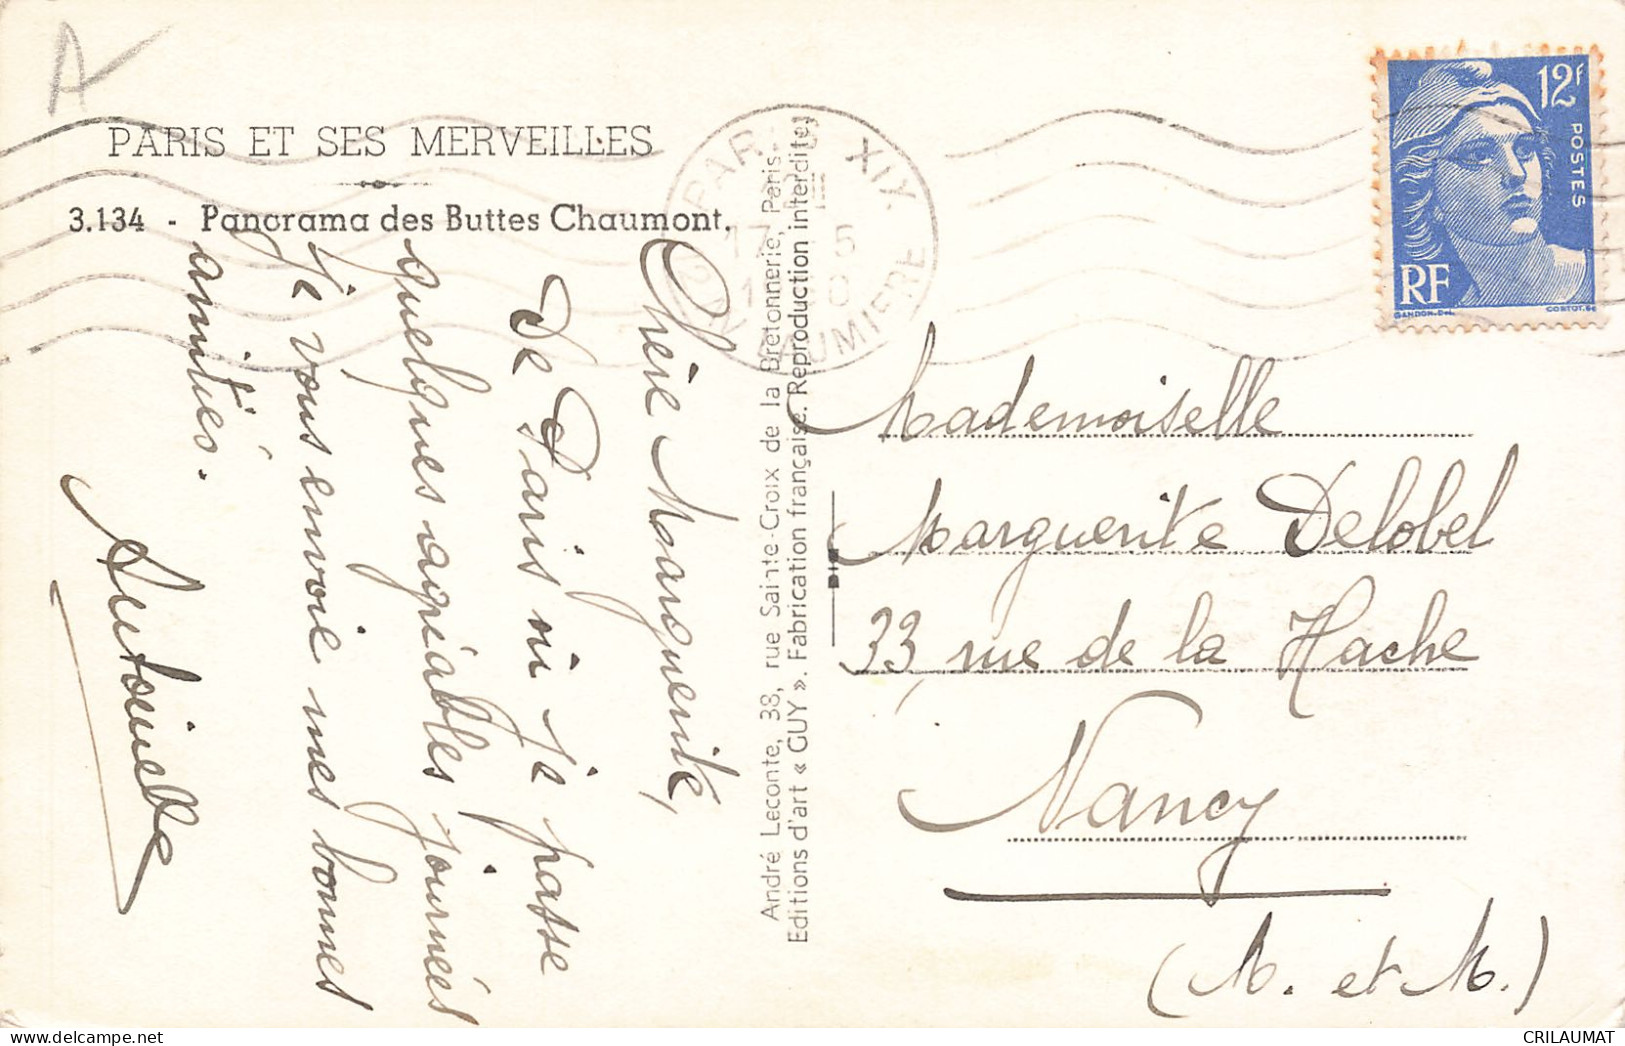 PARIS ET SES MERVEILLES
3.134 - Panorama des Buttes Chaumont.
Chère Marguerite,
De Paris où je passe
quelques agréables journées
je vous envoie mes bonnes
amitiés.
Antoinette
André Leconte, 38, rue Sainte-Croix de la Bretonnerie, Paris.
Editions d'art « GUY ». Fabrication française. Reproduction interdite.
PARIS XIX
12F
POSTES
RF
GANDON.DEL
Mademoiselle
Marguerite Delobel
33, rue de la Hache
Nancy
(M. et M.)
CRILAUMAT